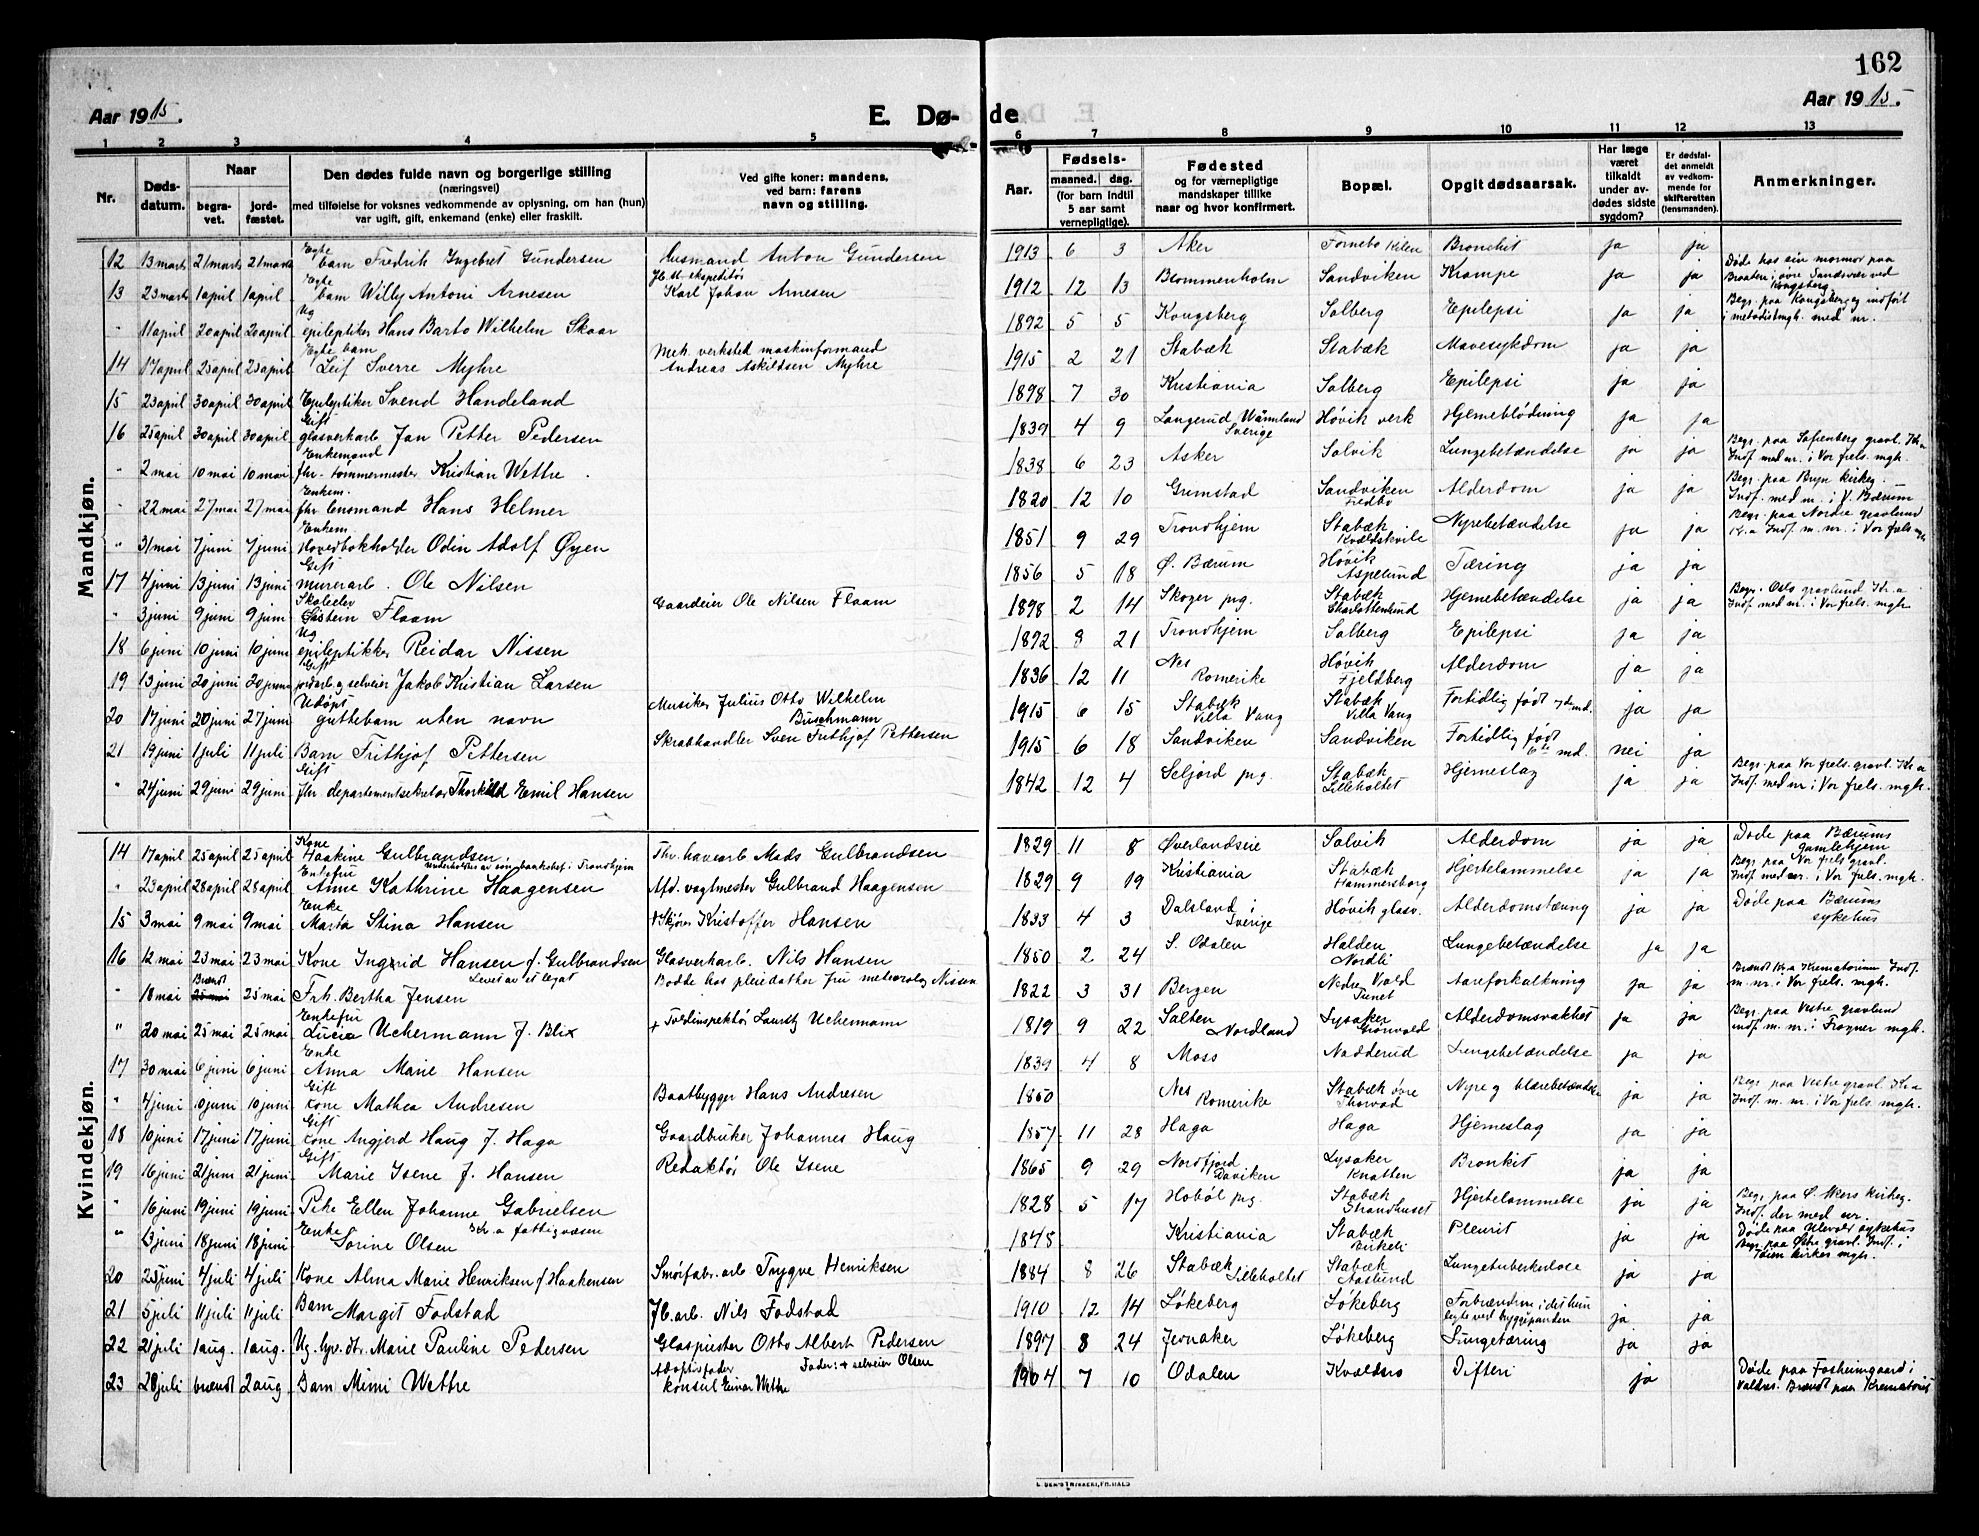 162
Aar 1915.
E. Dø- de
Aar 1915.
1 2 3 4 5 6 7 8 9 10 11 12 13
Nr.
Døds-
datum.
Naar
begra-
vet.
jord-
fæstet.
Den dødes fulde navn og borgerlige stilling
(næringsvei)
med tilføielse for voksnes vedkommende av oplysning, om han (hun)
var ugift, gift, enkemand (enke) eller fraskilt.
Ved gifte koner: mandens,
ved barn: farens
navn og stilling.
Aar.
Fødsels-
maaned. dag.
(for barn indtil
5 aar samt
vernepligtige).
Fødested
og for værnepligtige
mandskaper tillike
naar og hvor konfirmert.
Bopæl.
Opgit dødsaarsak.
Har læge
været
tilkaldt
under av-
dødes sidste
sygdom?
Er dødsfal-
det anmeldt
av vedkom-
mende for
skifteretten
(lensmanden).
Anmerkninger.
Mandkjøn.
12 13 marts 21 marts 21 marts Egte barn Fredrik Ingebret Gundersen Husmand Anton Gundersen 1913 6 3 Aker Fornebo Kilen Bronchit ja ja
13 23 marts 1 april 1 april Egte barn Willy Antoni Arnesen Jb.st. ekspeditør Karl Johan Arnesen 1912 12 13 Blommenholm Sandviken Krampe ja ja Døde hos sin mormor paa Braaten i øvre Sandsvær ved Kongsberg
" 11 april 20 april 20 april Ug epileptiker Hans Barto Wilhelm Skaar 1892 5 5 Kongsberg Solberg Epilepsi ja ja Begr. paa Kongsberg og indført i metodistmgh. med nr.
14 17 april 25 april 25 april Egte barn Leif Sverre Myhre Mek. verksted maskinformand Andreas Askildsen Myhre 1915 2 21 Stabæk Stabæk Mavesykdom ja ja
15 23 april 30 april 30 april Epileptiker Svend Handeland 1898 7 30 Kristiania Solberg Epilepsi ja ja
16 25 april 30 april 30 april Gift glasverkarb Jan Petter Pedersen 1839 4 9 Langerud Wärmland Sverige Høvik verk Hjerneblødning ja ja
" 2 mai 10 mai 10 mai Enkemand fhr. tømmermester Kristian Wettre 1838 6 23 Asker Solvik Lungebetændelse ja ja Begr. paa Sofienberg gravl. Kr.a Indf. med nr. i Vor frels. mgh.
" 22 mai 27 mai 27 mai Enkem. fhr Husmand Hans Helmer 1820 12 10 Grimstad Sandviken Fredbo Alderdom ja ja Begr. paa Bryn kirkeg. Indf. med nr. i V. Bærum
" 31 mai 7 juni 7 juni Enkem. Hovedbokholder Odin Adolf Øyen 1851 9 29 Trondhjem Stabæk Kveldshvile Nyrebetændelse ja ja Begr. paa Nordre gravlund Kr.a Indf. m. nr. i Vor frels. mgh
17 4 juni 13 juni 13 juni Gift murerarb. Ole Nilsen 1856 5 18 Ø. Bærum Høvik Aspelund Tæring ja ja
" 3 juni 9 juni 9 juni Skoleelev Flaam Gaardeier Ole Nilsen Flaam 1898 2 14 Skoger pg. Stabæk Charlottenlund Hjernebetændelse ja ja Begr. Oslo gravlund Kr.a Indf. med nr. i Vor frels. mgh
18 6 juni 10 juni 10 juni Ug epileptikker Reidar Nissen 1892 8 21 Trondhjem Solberg Epilepsi ja ja
19 13 juni 20 juni 20 juni Gift jordarb. og selveier Jakob Kristian Larsen 1836 12 11 Nes Romerike Høvik Fjeldberg Alderdom ja ja
20 17 juni 20 juni 27 juni Udøpt guttebarn uten navn Musiker Julius Otto Wilhelm Buschmann 1915 6 15 Stabæk Villa Vang Stabæk Villa Vang Fortidlig født 7de md. ja ja
21 19 juni 1 juli 11 juli Barn Frithjof Pettersen Skrabhandler Sven Frithjof Pettersen 1915 6 18 Sandviken Sandviken Fortidlig født 6te md. nei ja
" 24 juni 29 juni 29 juni Gift fhr departementsekretær Thorkild Emil Hansen 1842 12 4 Seljord pg. Stabæk Lilleholtet Hjerneslag ja ja Begr. paa Vor frels. gravl. Kr.a Indf. med nr. i Vor frels. mgh.
Kvindekjøn.
14 17 april 25 april 25 april Kone Haakine Gulbrandsen Fhv. havearb Mads Gulbrandsen 1829 11 8 Øverlandseie Solvik Alderdom ja ja Døde paa Bærums gamlehjem
" 23 april 28 april 28 april Enkefru Anne Kathrine Haagensen Afd. vagtmester Gulbrand Haagensen 1829 9 19 Kristiania Stabæk Hammersborg Hjertelammelse ja ja Begr. paa Vor frels gravl. Indf. med nr. i Vor frels. mgh.
15 3 mai 9 mai 9 mai Enke Marta Stina Hansen Kristoffer Hansen 1833 4 3 Dalsland i Sverige Høvik glasv. Alderdomstæring ja ja Døde paa Bærums sykehus
16 12 mai 23 mai 23 mai Kone Ingrid Hansen f. Gulbrandsen Glasverkarb. Nils Hansen 1850 2 24 S. Odalen Halden Nordli Lungebetændelse ja ja
" 18 mai Brændt 25 mai 25 mai Frk. Bertha Jensen Levet av et legat Bodde hos pleiedatter fru meteorolog Nissen 1822 3 31 Bergen Nedre Vold Tunet Aareforkalkning ja ja Brændt Kr.a Krematorium Indf. m. nr. i Vor frels. mgh.
" 20 mai 25 mai 25 mai Enkefru Lucia Uchermann f. Blix + Toldinspektør Lauritz Uchermann 1819 9 22 Salten Nordland Lysaker Grønvold Alderdomsvakhet ja ja Begr. paa Vestre gravlund indf. m. nr. i Frogner mgh.
17 30 mai 6 juni 6 juni Enke Anna Marie Hansen 1839 4 8 Moss Nadderud Lungebetændelse ja ja
" 4 juni 10 juni 10 juni Gift kone Mathea Andresen Baatbygger Hans Andresen 1850 Nes Romerike Stabæk øvre Thorvad Nyre og blærebetændelse ja ja Begr. paa Vestre gravl. Kr.a Indf. m. nr. i Vor frels. mgh.
18 10 juni 17 juni 17 juni Gift kone Angjerd Haug f. Haga Gaardbruker Johannes Haug 1857 11 28 Haga Haga Hjerneslag ja ja
19 16 juni 21 juni 21 juni Gift Marie Isene f. Hansen Redaktør Ole Isene 1865 9 29 Nordfjord Daviken Lysaker Knatten Bronkit ja ja
" 16 juni 19 juni 19 juni Pike Ellen Johanne Gabrielsen 1828 5 17 Hobøl pg. Stabæk Strandhuset Hjertelammelse ja ja Begr. paa Ø. Akers kirkeg. Indf. der med nr.
" 13 juni 18 juni 18 juni Enke Sorine Olsen Kr.a fattigvæsen 1845 Kristiania Stabæk Birkeli Pleurit ja ja Døde paa Ulevold sykehus Begr. paa Østre gravl. Indf. i kirkes mgh.
20 25 juni 4 juli 4 juli Kone Alma Marie Henriksen f Haakensen Smørfabr. arb Trygve Henriksen 1884 8 26 Stabæk Lilleholtet Stabæk Aaslund Lungetuberkulose ja ja
21 5 juli 11 juli 11 juli Barn Margit Fodstad Jb. arb. Nils Fodstad 1910 12 14 Løkeberg Løkeberg Forbrænding, idet hun ved bryggepanden ja ja
22 21 juli 1 aug. 1 aug. Ug. Marie Pauline Pedersen Glaspuster Otto Albert Pedersen 1897 8 24 Jevnaker Løkeberg Lungetæring ja ja
23 28 juli brændt 2 aug Barn Mimi Wettre Adoptivfader konsul Einar Wettre Fader: + selveier Olsen 1904 7 10 Odalen Kvældsro Difteri ja Døde paa Fosheimgaard i Valdres. Brændt paa Krematoriet